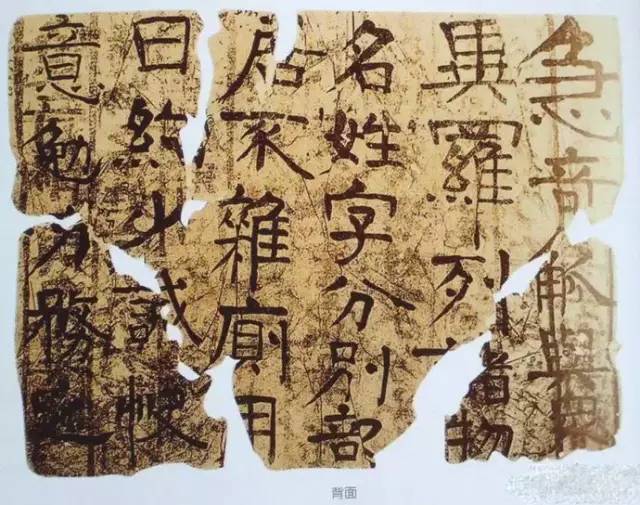 急奇觚與眾
異羅列諸物
名姓字分別部
居不雜廁用
日約少誠快
意勉力務之
背面